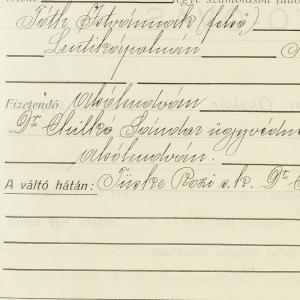 Tóth Istvánnak (felső)
Lentikápolnán
Fizetendő alsólendván
Dr Csillkó Sándor ügyvédne
alsólendván.
A váltó hátán: Tüske Rozi s.k. Dr